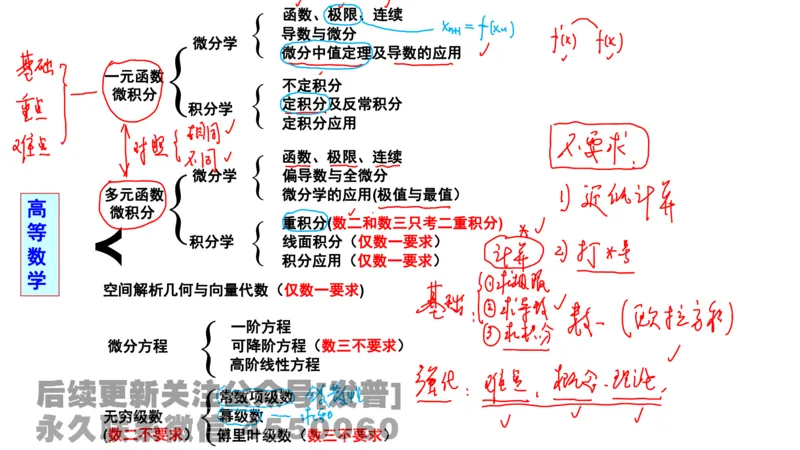 函数、极限、连续
微分学
导数与微分
微分中值定理及导数的应用
xn+1 = f(xn)
f'(x) f(x)
基础
重点
难点
一元函数
微积分
不定积分
积分学
定积分及反常积分
定积分应用
对照
相同
不同
函数、极限、连续
微分学
偏导数与全微分
微分学的应用(极值与最值)
多元函数
微积分
重积分(数二和数三只考二重积分)
积分学
线面积分（仅数一要求）
积分应用（仅数一要求）
高等数学
空间解析几何与向量代数（仅数一要求)
一阶方程
微分方程
可降阶方程（数三不要求）
高阶线性方程
常数项级数
无穷级数
幂级数
(数二不要求)
傅里叶级数（数三不要求）
不要求
1) 近似计算
2) 打*号
数一 (欧拉方程)
计算
基础:
①求极限
②求导数
③求积分
强化: 难点、概念、理论.
后续更新关注公众号[发普]